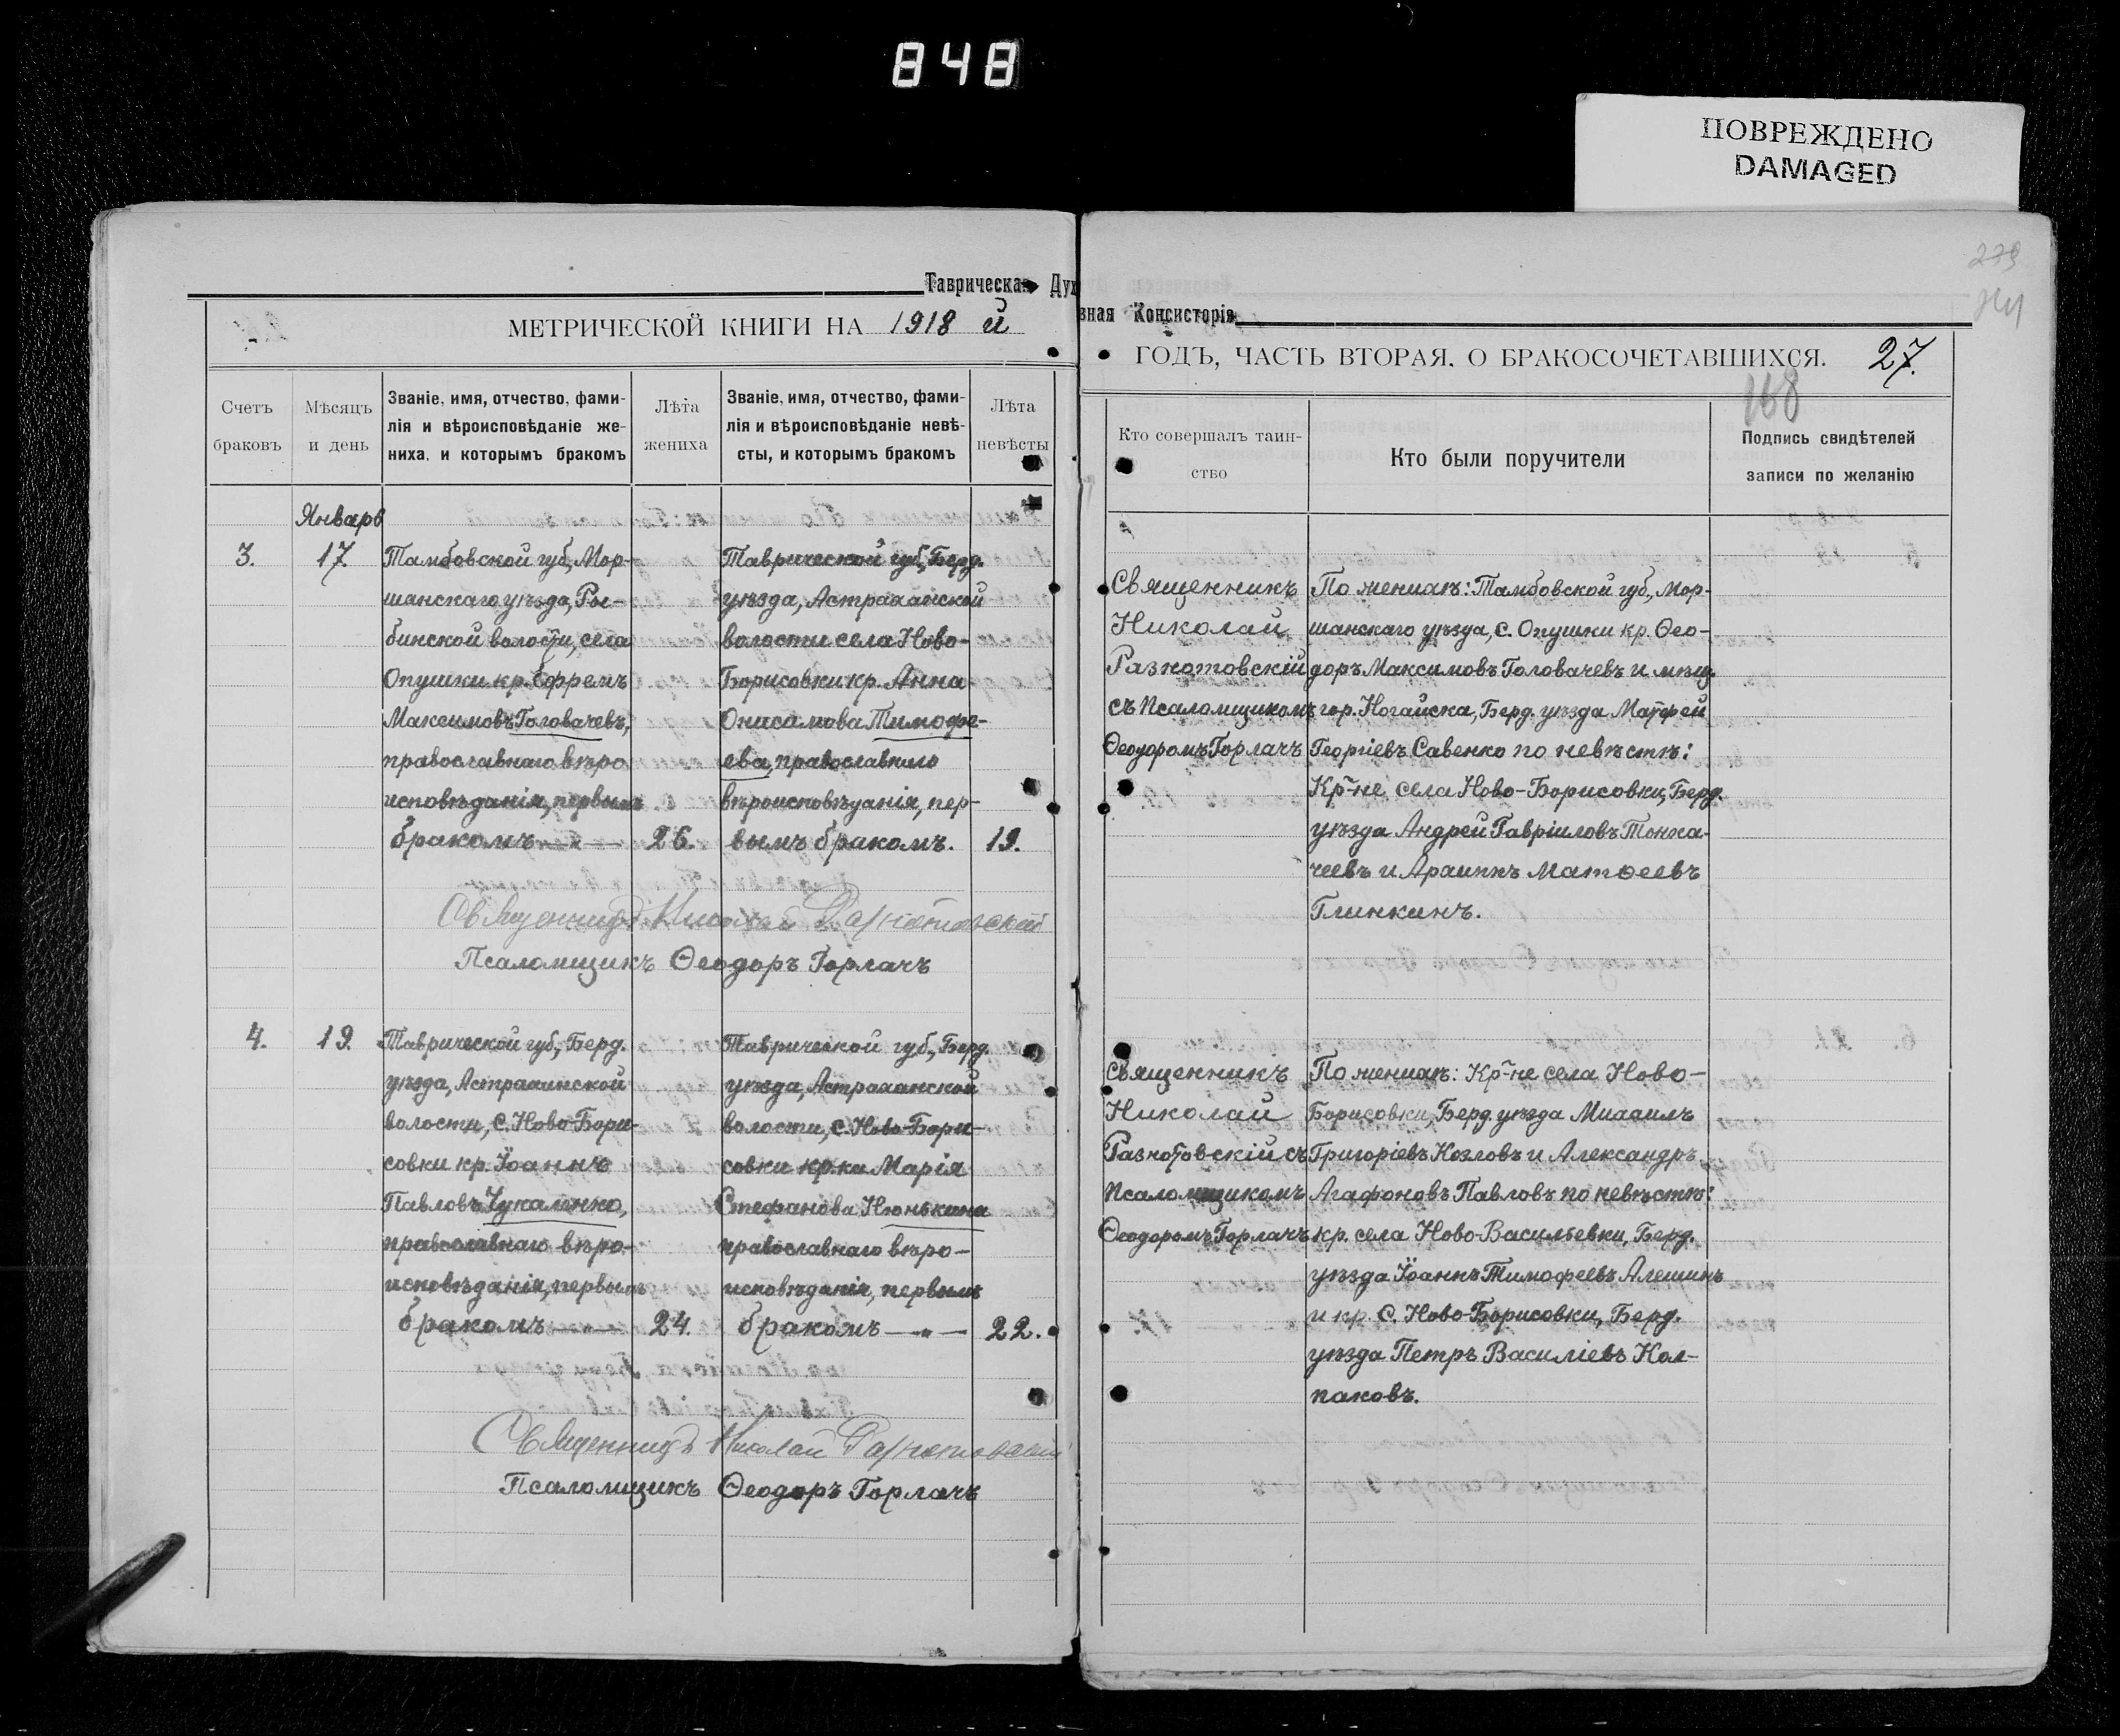 848
ПОВРЕЖДЕНО
DAMAGED
Таврическая Дух
вная Консисторія
239
МЕТРИЧЕСКОЙ КНИГИ НА 1918 й
ГОДЪ, ЧАСТЬ ВТОРАЯ, О БРАКОСОЧЕТАВШИХСЯ. 27.
168
Счетъ браковъ
Мѣсяцъ и день
Званіе, имя, отчество, фами-
лія и вѣроисповѣданіе же-
ниха, и которымъ бракомъ
Лѣта жениха
Званіе, имя, отчество, фами-
лія и вѣроисповѣданіе невѣ-
сты, и которымъ бракомъ
Лѣта невѣсты
Кто совершалъ таин-
ство
Кто были поручители
Подпись свидѣтелей
записи по желанію
Январь
3.
17.
Тамбовской губ., Мор-
шанскаго уѣзда, Ры-
бинской волости, села
Опушки кр. Ефремъ
Максимовъ Головачевъ,
православнаго вѣро
исповѣданія, первымъ
бракомъ —„—
26.
Таврической губ., Берд.
уѣзда, Астраханской
волости села Ново-
Борисовки кр. Анна
Онисимова Тимофе-
ева, православнаго
вѣроисповѣданія, пер-
вымъ бракомъ.
19.
Священникъ
Николай
Разнотовскій
съ Псаломщикомъ
Ѳеодоромъ Горлачъ
По женихѣ: Тамбовской губ., Мор-
шанскаго уѣзда, с. Опушки кр. Ѳео-
доръ Максимовъ Головачевъ и мѣщ.
гор. Ногайска, Берд. уѣзда Матфей
Георгіевъ Савенко по невѣстѣ:
Кр-не села Ново-Борисовки, Берд.
уѣзда Андрей Гавріиловъ Тонка-
чеевъ и Архипъ Матѳеевъ
Глинкинъ.
Священникъ Николай Разнотовскій
Псаломщикъ Ѳеодоръ Горлачъ
4.
19.
Таврической губ., Берд.
уѣзда, Астраханской
волости, с. Ново-Бори-
совки кр. Іоаннъ
Павловъ Чукаленко,
православнаго вѣро-
исповѣданія, первымъ
бракомъ —„—
24.
Таврической губ., Берд.
уѣзда, Астраханской
волости, с. Ново-Бори-
совки кр-ка Марія
Стефанова Нюнькина
православнаго вѣро-
исповѣданія, первымъ
бракомъ —„—
22.
Священникъ
Николай
Разнотовскій съ
Псаломщикомъ
Ѳеодоромъ Горлачъ
По женихѣ: Кр-не села Ново-
Борисовки, Берд. уѣзда Михаилъ
Григоріевъ Козловъ и Александръ
Агафоновъ Павловъ по невѣстѣ:
кр. села Ново-Васильевки, Берд.
уѣзда Іоаннъ Тимофеевъ Алешинъ
и кр. с. Ново-Борисовки, Берд.
уѣзда Петръ Василіевъ Кол-
паковъ.
Священникъ Николай Разнотовскій
Псаломщикъ Ѳеодоръ Горлачъ